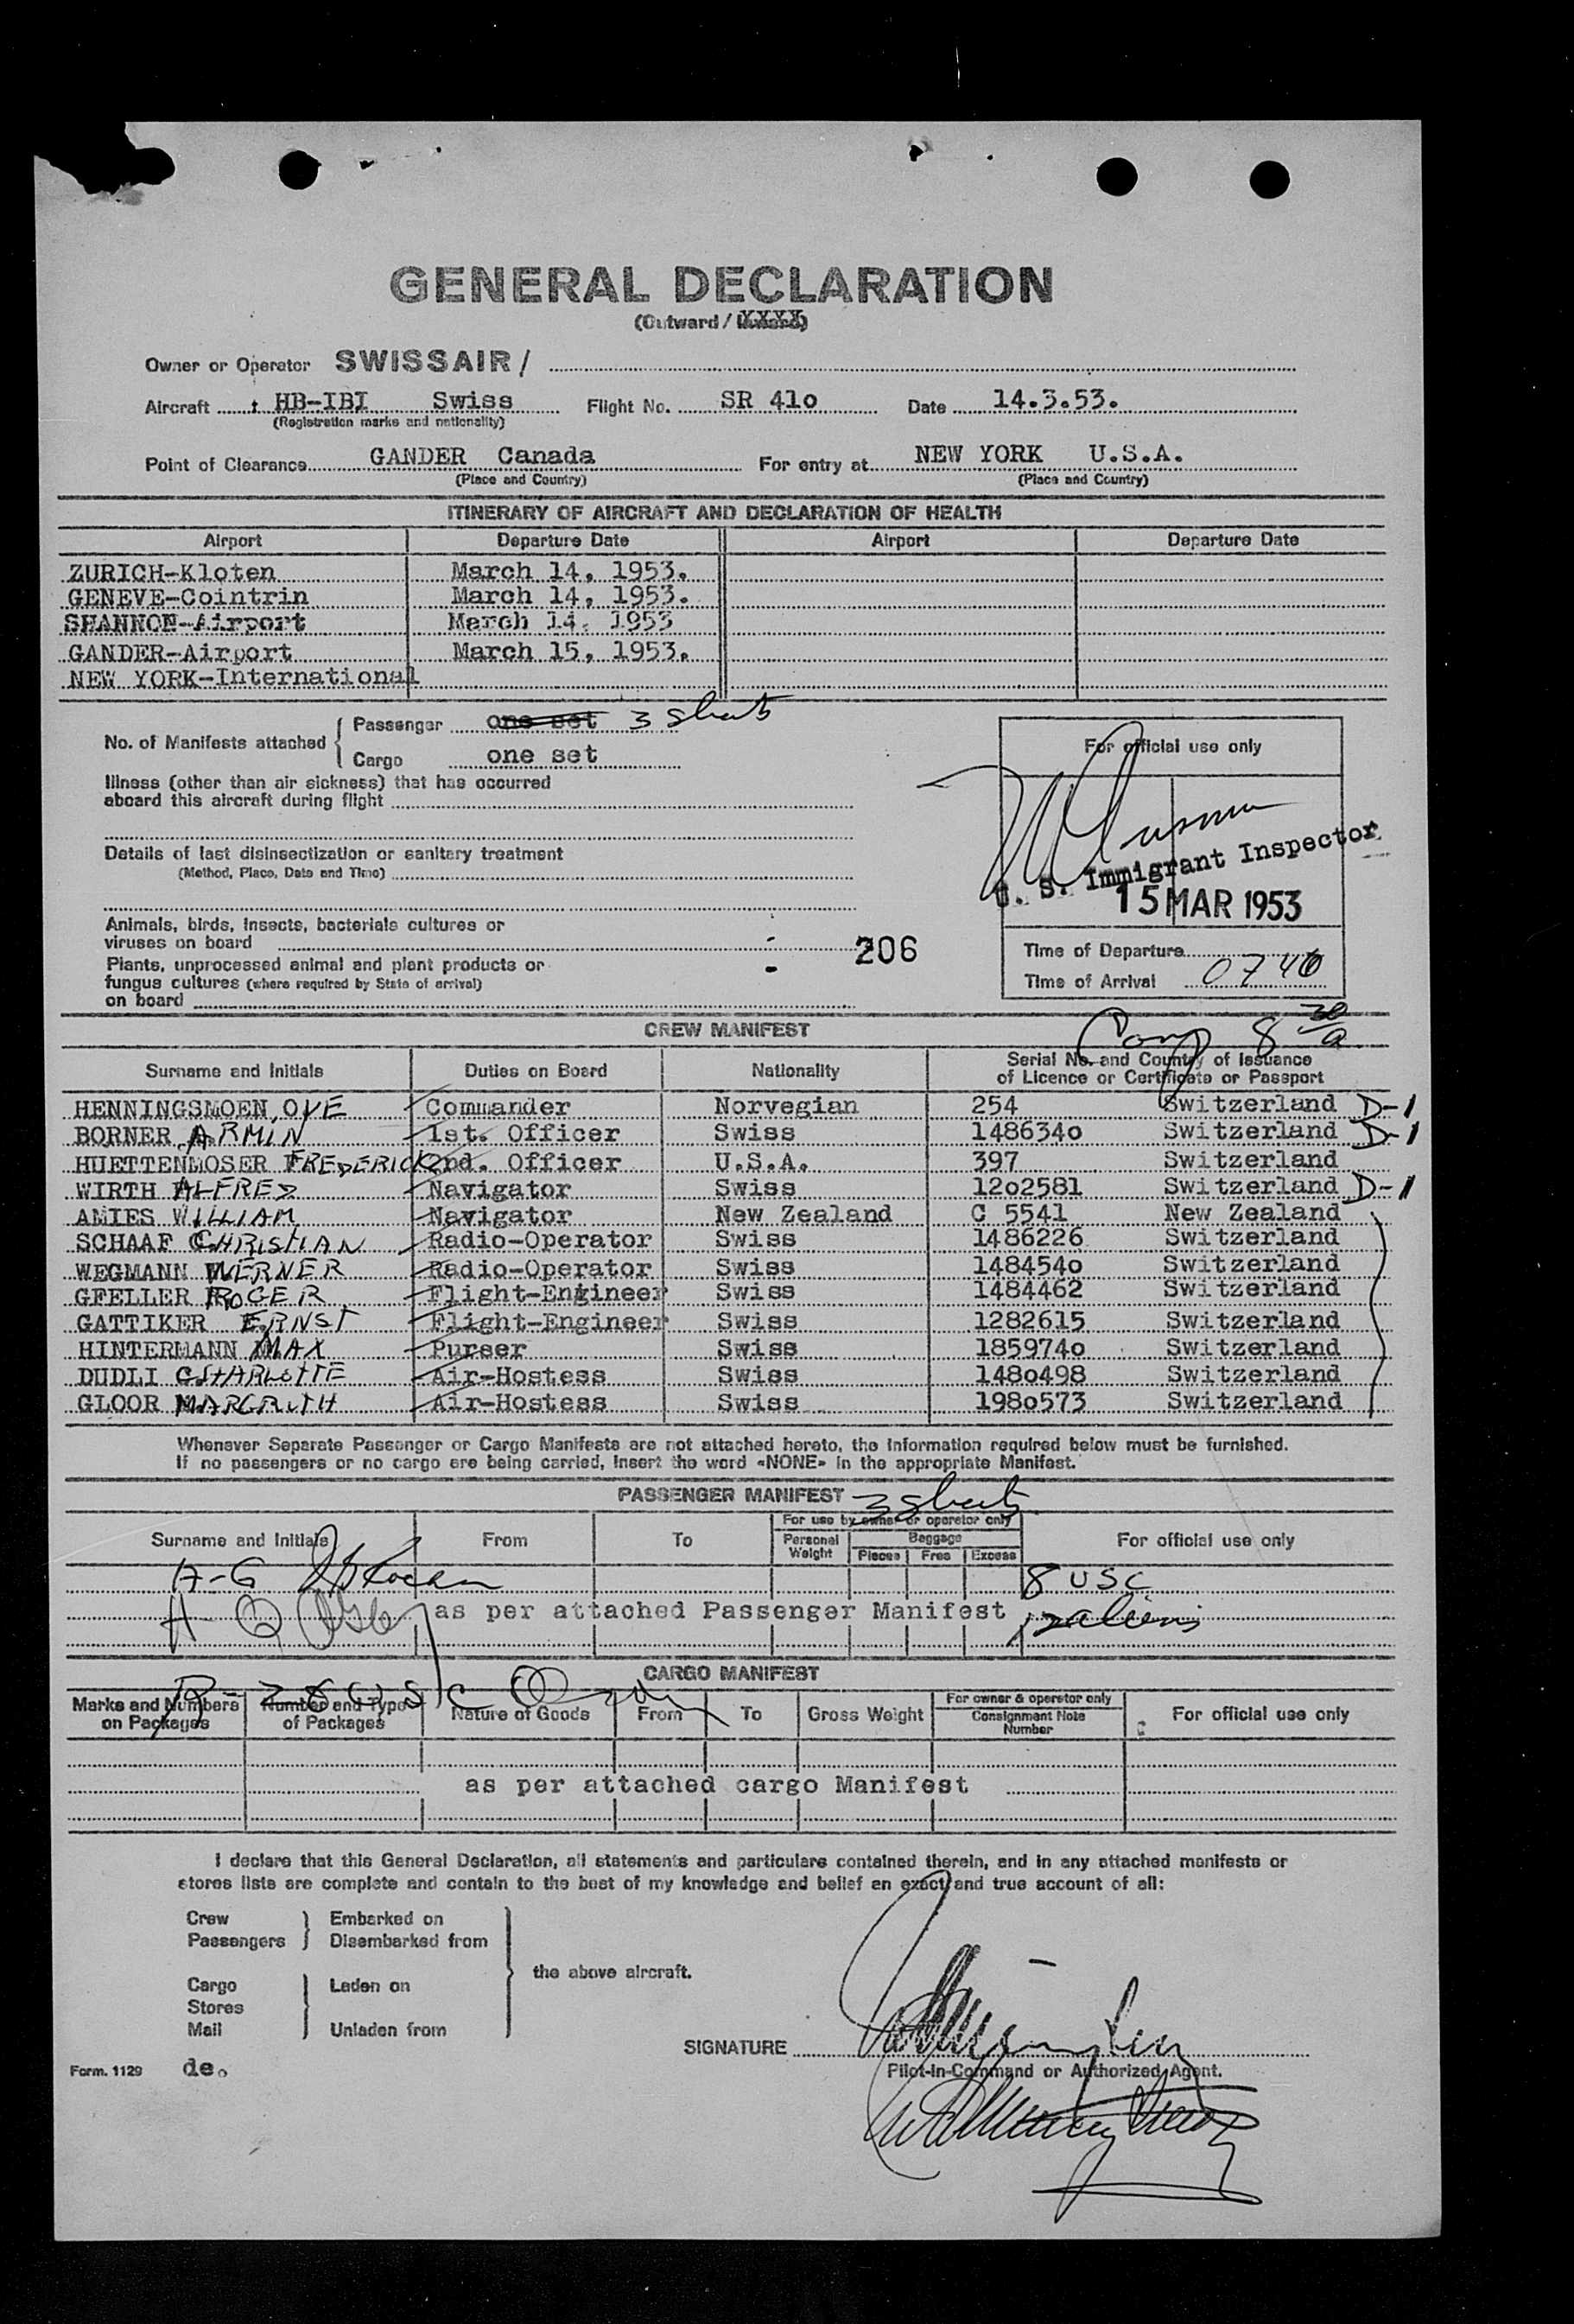 GENERAL DECLARATION
(Outward / XXXX)
Owner or Operator SWISSAIR /
Aircraft : HB-IBI Swiss Flight No. SR 41o Date 14.3.53.
(Registration marks and nationality)
Point of Clearance GANDER Canada For entry at NEW YORK U.S.A.
(Place and Country) (Place and Country)
ITINERARY OF AIRCRAFT AND DECLARATION OF HEALTH
Airport Departure Date Airport Departure Date
ZURICH-Kloten March 14, 1953.
GENEVE-Cointrin March 14, 1953.
SHANNON-Airport March 14. 1953
GANDER-Airport March 15, 1953.
NEW YORK-International
No. of Manifests attached
Passenger one set 3 sheets
Cargo one set
For official use only
Illness (other than air sickness) that has occurred
aboard this aircraft during flight
Details of last disinsectization or sanitary treatment
(Method, Place, Date and Time)
U. S. Immigrant Inspector
15 MAR 1953
Animals, birds, insects, bacterials cultures or
viruses on board -
206
Plants, unprocessed animal and plant products or
fungus cultures (where required by State of arrival) -
on board
Time of Departure
Time of Arrival 0746
CREW MANIFEST
Comp 8 30/a
Surname and Initials Duties on Board Nationality Serial No. and Country of Issuance
of Licence or Certificate or Passport
HENNINGSMOEN, OVE Commander Norvegian 254 Switzerland D-1
BORNER ARMIN 1st. Officer Swiss 148634o Switzerland D-1
HUETTENMOSER FREDERICK 2nd. Officer U.S.A. 397 Switzerland
WIRTH ALFRED Navigator Swiss 12o2581 Switzerland D-1
AMIES WILLIAM Navigator New Zealand C 5541 New Zealand
SCHAAF CHRISTIAN Radio-Operator Swiss 1486226 Switzerland
WEGMANN WERNER Radio-Operator Swiss 148454o Switzerland
GFELLER ROGER Flight-Engineer Swiss 1484462 Switzerland
GATTIKER ERNST Flight-Engineer Swiss 1282615 Switzerland
HINTERMANN MAX Purser Swiss 185974o Switzerland
DUDLI CHARLOTTE Air-Hostess Swiss 148o498 Switzerland
GLOOR MARGRITH Air-Hostess Swiss 198o573 Switzerland
Whenever Separate Passenger or Cargo Manifests are not attached hereto, the information required below must be furnished.
If no passengers or no cargo are being carried, insert the word «NONE» in the appropriate Manifest.
PASSENGER MANIFEST 3 sheets
Surname and Initials From To For use by owner or operator only For official use only
Personal Weight Baggage
Pieces Free Excess
A-G 8 USC
H-Q as per attached Passenger Manifest aliens
CARGO MANIFEST
R- USC
Marks and Numbers on Packages Number and Type of Packages Nature of Goods From To Gross Weight For owner & operator only For official use only
Consignment Note Number
as per attached cargo Manifest
I declare that this General Declaration, all statements and particulars contained therein, and in any attached manifests or
stores lists are complete and contain to the best of my knowledge and belief an exact and true account of all:
Crew Embarked on
Passengers Disembarked from
the above aircraft.
Cargo Laden on
Stores
Mail Unladen from
SIGNATURE
Pilot-in-Command or Authorized Agent.
Form. 1129 de.